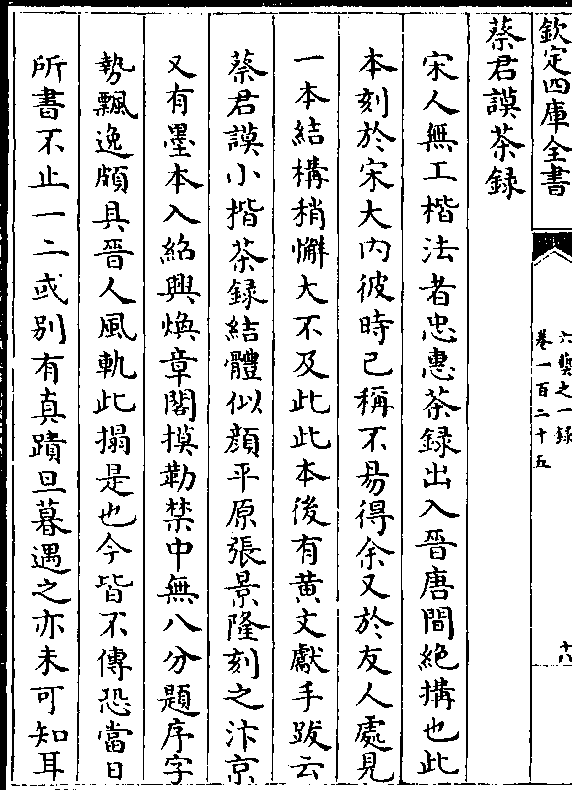 欽定四庫全書
六藝之一錄
卷一百二十五
十八
蔡君謨茶録
宋人無工楷法者忠惠茶録出入晉唐間絶搆也此
本刻於宋大内彼時已稱不易得余又於友人處見
一本結構稍懈大不及此此本後有黄文獻手跋云
蔡君謨小楷茶録結體似顔平原張景隆刻之汴京
又有墨本入紹興煥章閣摸勒禁中無八分題序字
勢飄逸頗具晉人風軌此搨是也今皆不傳恐當日
所書不止一二或别有真蹟旦暮遇之亦未可知耳